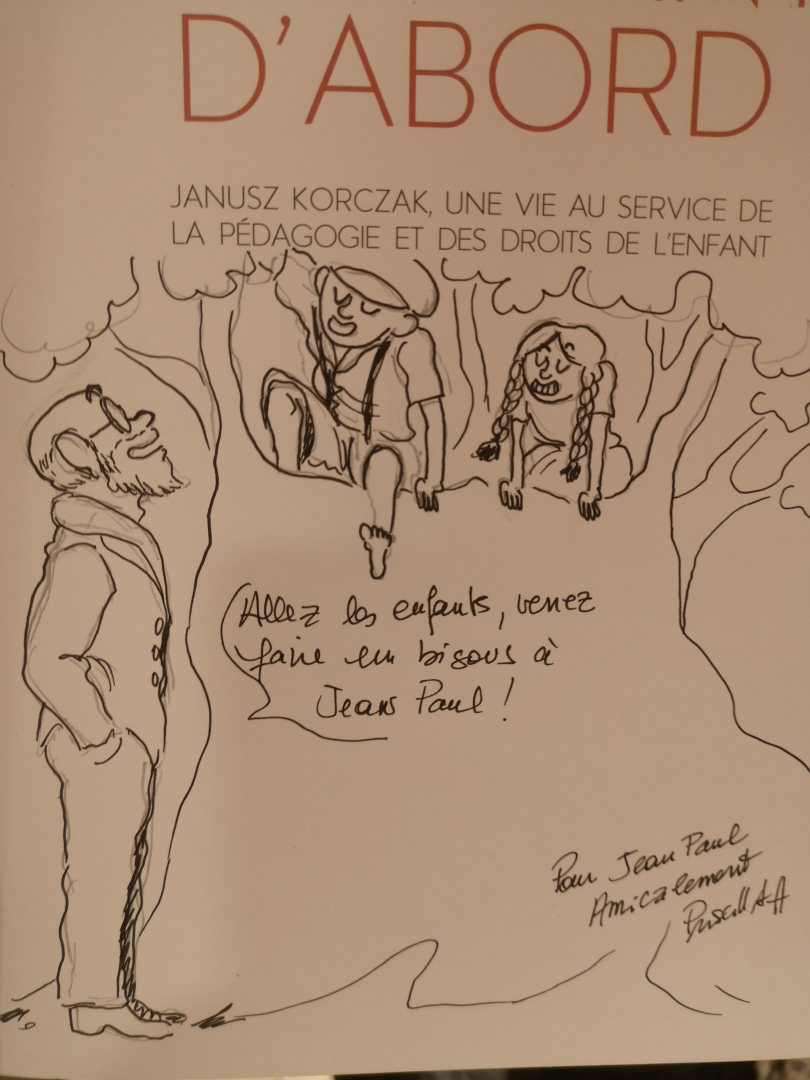 D'ABORD
JANUSZ KORCZAK, UNE VIE AU SERVICE DE
LA PÉDAGOGIE ET DES DROITS DE L'ENFANT
Allez les enfants, venez
faire un bisous à
Jean Paul !
Pour Jean Paul
Amicalement